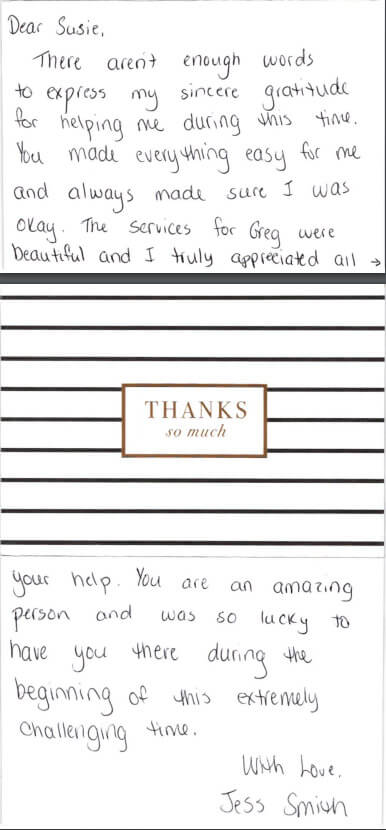 Dear Susie,
There aren't enough words
to express my sincere gratitude
for helping me during this time.
You made everything easy for me
and always made sure I was
okay. The services for Greg were
beautiful and I truly appreciated all →
THANKS
so much
your help. You are an amazing
person and was so lucky to
have you there during the
beginning of this extremely
challenging time.
With Love,
Jess Smith